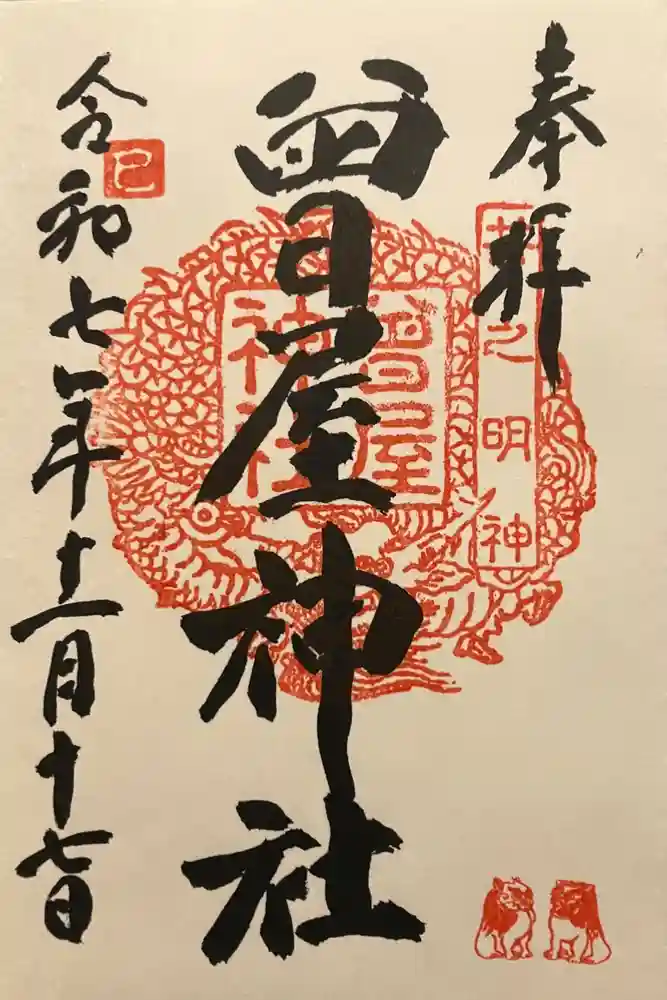 奉拝
井之明神
曽屋神社
曽屋
神社
令和七年十一月十七日
巳